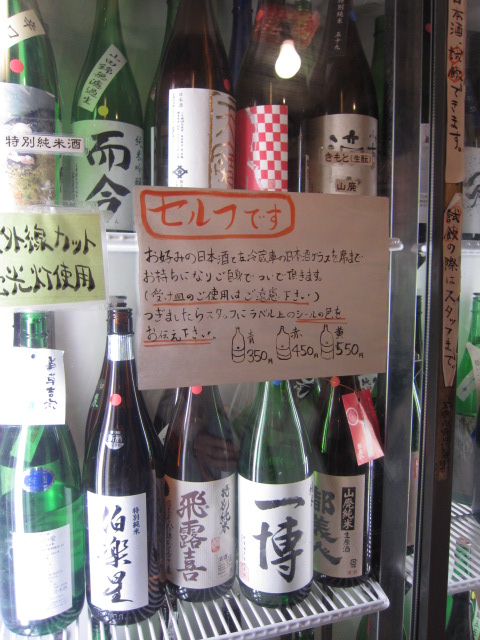 特別純米酒
而今
山田錦 無濾過生
純米吟
きもと(生酛)
山廃
日本酒試飲できます。
試飲の際にスタッフまで。
外線カット
光灯使用
セルフです
お好みの日本酒を左冷蔵庫の日本酒グラスを席まで
お持ちになりご自身でついで頂きます。
(受け皿のご使用はご遠慮下さい)
つぎましたらスタッフにラベル上のシールの色を
お伝え下さい。
青 350円
赤 450円
黄 550円
特別純米
伯楽星
特別純米
飛露喜
一博
山廃純米
生原酒
都美人